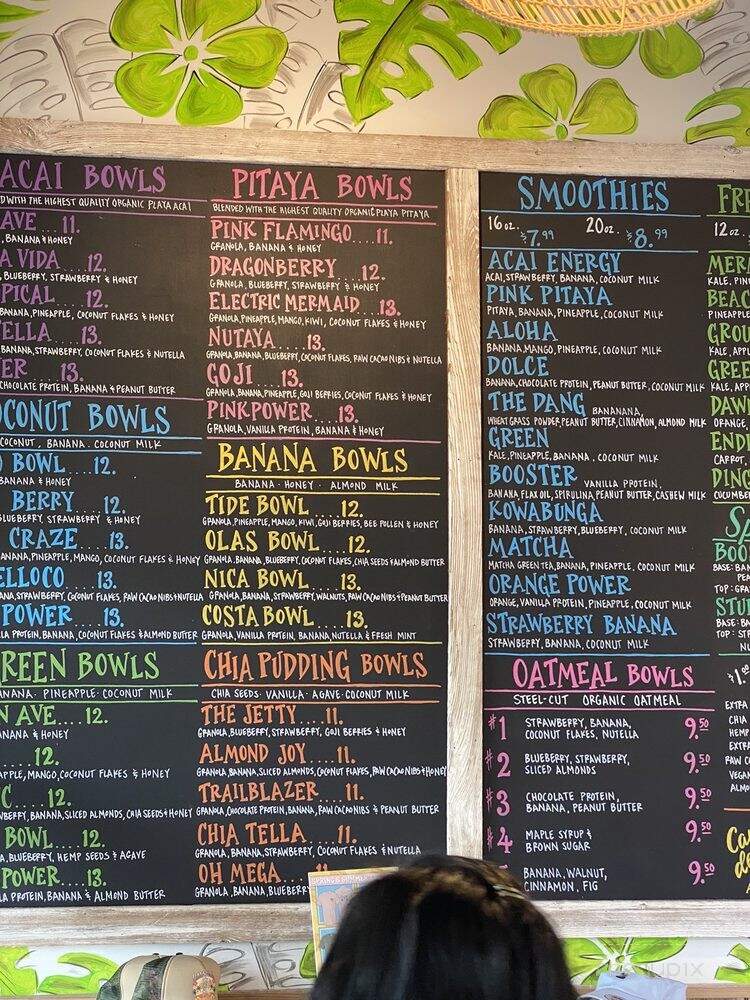 ACAI BOWLS
D WITH THE HIGHEST QUALITY ORGANIC PLAYA ACAI
AVE .... 11.
, BANANA & HONEY
A VIDA .... 12.
, BLUEBERRY, STRAWBERRY & HONEY
PICAL .... 12.
BANANA, PINEAPPLE, COCONUT FLAKES & HONEY
ELLA .... 13.
BANANA, STRAWBERRY, COCONUT FLAKES & NUTELLA
ER .... 13.
CHOCOLATE PROTEIN, BANANA & PEANUT BUTTER
OCONUT BOWLS
COCONUT, BANANA. COCONUT MILK
BOWL .... 12.
BANANA & HONEY
BERRY .... 12.
BLUEBERRY, STRAWBERRY & HONEY
CRAZE .... 13.
ANANA, PINEAPPLE, MANGO, COCONUT FLAKES & HONEY
ELLOCO .... 13.
ANA, STRAWBERRY, COCONUT FLAKES, RAW CACAO NIBS & NUTELLA
POWER .... 13.
LA PROTEIN, BANANA, COCONUT FLAKES & ALMOND BUTTER
REEN BOWLS
ANANA. PINEAPPLE. COCONUT MILK
N AVE .... 12.
ANANA & HONEY
.... 12.
APPLE, MANGO, COCONUT FLAKES & HONEY
C .... 12.
WBERRY, BANANA, SLICED ALMONDS, CHIA SEEDS & HONEY
BOWL .... 12.
A, BLUEBERRY, HEMP SEEDS & AGAVE
POWER .... 13.
LA PROTEIN, BANANA & ALMOND BUTTER
PITAYA BOWLS
BLENDED WITH THE HIGHEST QUALITY ORGANIC PLAYA PITAYA
PINK FLAMINGO .... 11.
GRANOLA, BANANA & HONEY
DRAGONBERRY .... 12.
GRANOLA, BLUEBERRY, STRAWBERRY & HONEY
ELECTRIC MERMAID .... 13.
GRANOLA, PINEAPPLE, MANGO, KIWI, COCONUT FLAKES & HONEY
NUTAYA .... 13.
GRANOLA, BANANA, BLUEBERRY, COCONUT FLAKES, RAW CACAO NIBS & NUTELLA
GOJI .... 13.
GRANOLA, BANANA, PINEAPPLE, GOJI BERRIES, COCONUT FLAKES & HONEY
PINK POWER .... 13.
GRANOLA, VANILLA PROTEIN, BANANA & HONEY
BANANA BOWLS
BANANA · HONEY · ALMOND MILK
TIDE BOWL .... 12.
GRANOLA, PINEAPPLE, MANGO, KIWI, GOJI BERRIES, BEE POLLEN & HONEY
OLAS BOWL .... 12.
GRANOLA, BANANA, BLUEBERRY, COCONUT FLAKES, CHIA SEEDS & ALMOND BUTTER
NICA BOWL .... 13.
GRANOLA, BANANA, STRAWBERRY, WALNUTS, RAW CACAO NIBS & PEANUT BUTTER
COSTA BOWL .... 13.
GRANOLA, VANILLA PROTEIN, BANANA, NUTELLA & FRESH MINT
CHIA PUDDING BOWLS
CHIA SEEDS · VANILLA · AGAVE · COCONUT MILK
THE JETTY .... 11.
GRANOLA, BLUEBERRY, STRAWBERRY, GOJI BERRIES & HONEY
ALMOND JOY .... 11.
GRANOLA, BANANA, SLICED ALMONDS, COCONUT FLAKES, RAW CACAO NIBS & HONEY
TRAILBLAZER .... 11.
GRANOLA, CHOCOLATE PROTEIN, BANANA, RAW CACAO NIBS & PEANUT BUTTER
CHIA TELLA .... 11.
GRANOLA, BANANA, STRAWBERRY, COCONUT FLAKES & NUTELLA
OH MEGA
GRANOLA, BANANA, BLUEBERRY
SMOOTHIES
16 oz. $7.99 20 oz. $8.99
ACAI ENERGY
ACAI, STRAWBERRY, BANANA, COCONUT MILK
PINK PITAYA
PITAYA, BANANA, PINEAPPLE, COCONUT MILK
ALOHA
BANANA, MANGO, PINEAPPLE, COCONUT MILK
DOLCE
BANANA, CHOCOLATE PROTEIN, PEANUT BUTTER, COCONUT MILK
THE DANG BANANANA,
WHEATGRASS POWDER, PEANUT BUTTER, CINNAMON, ALMOND MILK
GREEN
KALE, PINEAPPLE, BANANA, COCONUT MILK
BOOSTER VANILLA PROTEIN,
BANANA, FLAX OIL, SPIRULINA, PEANUT BUTTER, CASHEW MILK
KOWABUNGA
BANANA, STRAWBERRY, BLUEBERRY, COCONUT MILK
MATCHA
MATCHA GREEN TEA, BANANA, PINEAPPLE, COCONUT MILK
ORANGE POWER
ORANGE, VANILLA PROTEIN, PINEAPPLE, COCONUT MILK
STRAWBERRY BANANA
STRAWBERRY, BANANA, COCONUT MILK
OATMEAL BOWLS
STEEL-CUT ORGANIC OATMEAL
#1 STRAWBERRY, BANANA, COCONUT FLAKES, NUTELLA 9.50
#2 BLUEBERRY, STRAWBERRY, SLICED ALMONDS 9.50
#3 CHOCOLATE PROTEIN, BANANA, PEANUT BUTTER 9.50
#4 MAPLE SYRUP & BROWN SUGAR 9.50
BANANA, WALNUT, CINNAMON, FIG 9.50
FRE
12 oz.
MERM
KALE, PIN
BEAC
PINEAPPLE
GROU
KALE, APP
GREE
KALE, APP
DAW
ORANGE,
END
CARROT,
DING
CUCUMBE
BOO
BASE: BAN
TOP: GRA
STU
BASE: BA
TOP: ST
EXTRA
CHIA
HEMP
EXTR
RAW C
VEGAN
ALMO